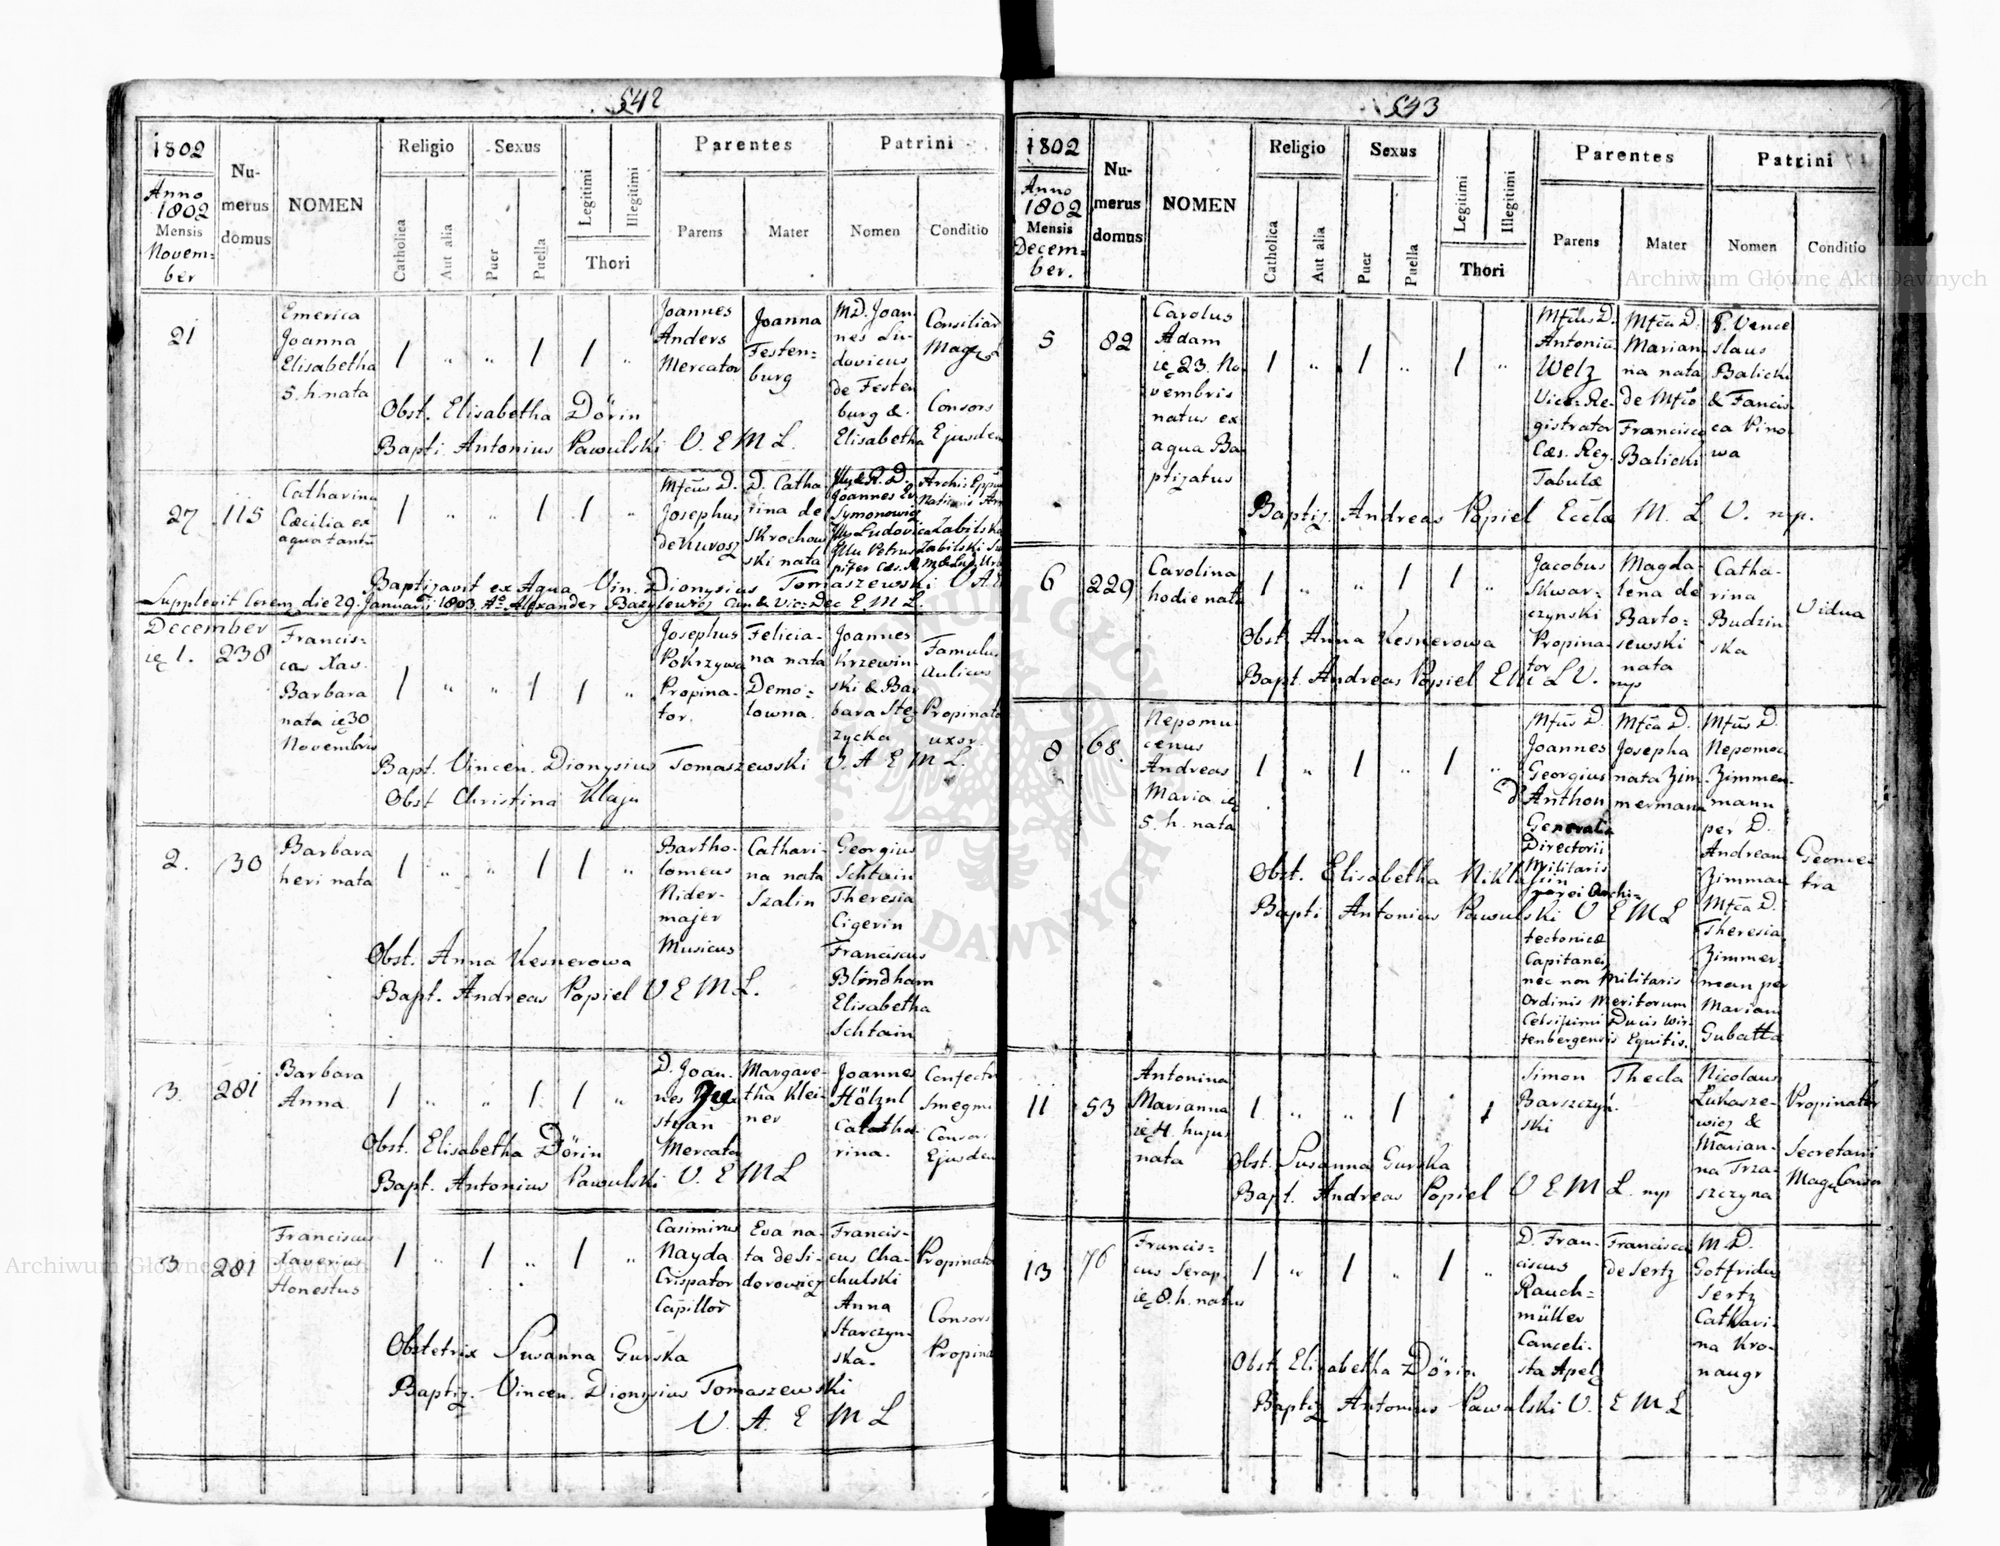 542
1802
Anno
1802
Mensis
Novem=
ber
Nu-
merus
domus
NOMEN
Religio
Catholica
Aut alia
Sexus
Puer
Puella
Legitimi
Illegitimi
Thori
Parentes
Parens
Mater
Patrini
Nomen
Conditio
21
Emerica
Joanna
Elisabetha
5. h. nata
Joannes
Anders
Mercator
Joanna
Festen=
burg
M.D. Joan
nes Lu-
dovicus
de Festen
burg &
Elisabetha
Consiliar
Consors
Ejusdem
Obst. Elisabetha Dörin
Bapti. Antonius Pawulski V. E M L.
27
115
Catharina
Cæcilia ex
aqua tantū
Mfcus D.
Josephus
de Kurosz
D. Catha-
rina de
Skrochow
ski nata
Joannes
Symonowicz
Baptizavit ex Aqua Vin. Dionysius Tomaszewski V A E
Supplevit Cerem. die 29. Januarii 1803 Alexander Bazylewicz Can & Vic=Dec E M L.
December
ię 1.
238
Francis=
ca Xav.
Barbara
nata ię 30
Novembris
Josephus
Pokrzywa
Propina-
tor.
Felicia-
na nata
Demo=
lowna.
Joannes
Krzewin-
ski & Bar
bara Ste
rzycka
Famulus
Aulicus
Propinato
uxor
Bapt. Vincen. Dionysius Tomaszewski V. A E M L.
Obst Christina Klaju
2.
130
Barbara
heri nata
Bartho-
lomeus
Nider-
majer
Musicus
Cathari-
na nata
Szalin
Georgius
Schtain
Theresia
Cigerin
Franciscus
Blindham
Elisabetha
Schtain
Obst. Anna Kesnerowa
Bapt. Andreas Popiel V E M L.
3.
281
Barbara
Anna
D. Joan-
nes
Mercator
Margare-
tha Klei-
ner
Joannes
Hölznl
Catha
rina.
Confectu
Smegm
Consor
Ejusdem
Obst. Elisabetha Dörin
Bapt. Antonius Pawulski V. E M L
3
281
Franciscus
Xaverius
Honestus
Casimirus
Nayda
Crispator
Capillor
Eva na-
ta de Si-
dorowicz
Francis-
cus Cha-
chulski
Anna
Starczyn-
ska.
Propinator
Consors
Propina
Obstetrix Susanna Gurska
Baptiz. Vincen. Dionysius Tomaszewski
V. A. E M L
543
1802
Anno
1802
Mensis
Decem=
ber.
Nu-
merus
domus
NOMEN
Religio
Catholica
Aut alia
Sexus
Puer
Puella
Legitimi
Illegitimi
Thori
Parentes
Parens
Mater
Patrini
Nomen
Conditio
5
82
Carolus
Adam
ię 23. No
vembris
natus ex
aqua Ba
ptizatus
Mfcus D.
Antonius
Welz
Vice=Re-
gistrator
Cæs. Reg.
Tabulæ
Mfca D.
Marian
na nata
de Mfco
Francisco
Balicki
P. Vence
slaus
Balicki
& Francis
ca Pino
wa
Baptiz. Andreas Popiel Eccla M. L V. mp.
6
229
Carolina
hodie nata
Jacobus
Skwar=
czynski
Propina
tor
Magda-
lena de
Barto=
sewski
nata
mp
Catha-
rina
Budzin
ska
Vidua
Obst. Anna Kesnerowa
Bapt. Andreas Popiel E M L V.
8
68.
Nepomu
cenus
Andreas
Maria ię
5. h. nata
Mfus D.
Joannes
Georgius
d'Anthon
Generalis
Directorii
Militaris
Archi=
tectonicæ
Capitanei,
nec non Militaris
Ordinis Meritorum
Celsissimi Ducis Wir=
tenbergensis Equitis.
Mfca D.
Josepha
nata Zim
mermann
Mfus D.
Nepomuc
Zimmer-
mann
per D.
Andream
Zimman
Mfca D.
Theresia
Zimmer
man per
Mariam
Gubatta
Geome
tra
Obst. Elisabetha Niklasin
Bapti Antonius Pawulski V E M L
11
53
Antonina
Marianna
ię 4. hujus
nata
Simon
Barszczyń
ski
Thecla
Nicolaus
Lukasze-
wicz &
Marian-
na Trza-
szczyna
Propinator
Secretarii
Obst. Susanna Gurska
Bapt. Andreas Popiel V E M L. mp
13
76
Francis=
cus Serap.
ię 8. h. natus
D. Fran-
ciscus
Rauch=
müller
Canceli-
sta Apel
Francisca
de Sertz
M. D.
Gotfridus
Sertz
Cathari-
na Kro-
naugr
Obst. Elisabetha Dörin
Baptiz Antonius Pawulski V. E M L
Archiwum Główne Akt Dawnych
Archiwum Główne Akt Dawnych
ARCHIWUM GŁÓWNE AKT DAWNYCH